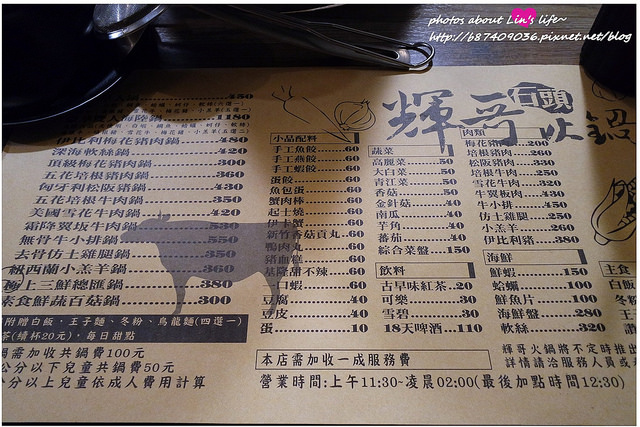 photos about Lin's life~
http://b87409036.pixnet.net/blog
輝哥石頭火鍋
450
1180
伊比利梅花豬肉鍋 480
深海軟絲鍋 420
頂級梅花豬肉鍋 300
五花培根豬肉鍋 360
匈牙利松阪豬鍋 430
五花培根牛肉鍋 350
美國雪花牛肉鍋 420
霜降翼板牛肉鍋 530
無骨牛小排鍋 550
去骨仿土雞腿鍋 350
紐西蘭小羔羊鍋 360
極上三鮮總匯鍋 380
素食鮮蔬百菇鍋 300
附贈白飯、王子麵、冬粉、烏龍麵(四選一)
茶(續杯20元)、每日甜點
需加收共鍋費100元
公分以下兒童共鍋費50元
分以上兒童依成人費用計算
小品配料
手工魚餃 60
手工燕餃 60
手工蝦餃 60
蛋餃 60
魚包蛋 60
蟹肉棒 60
起士燒 60
伊卡蟹 60
新竹香菇貢丸 60
鴨肉丸 60
豬血糕 60
基隆甜不辣 60
一口蝦 60
豆腐 40
豆皮 40
蛋 10
蔬菜
高麗菜 50
大白菜 50
青江菜 50
香菇 50
金針菇 40
南瓜 40
芋角 40
蕃茄 40
綜合菜盤 150
飲料
古早味紅茶 20
可樂 30
雪碧 30
18天啤酒 110
肉類
梅花豬肉 200
培根豬肉 260
松阪豬肉 330
培根牛肉 250
雪花牛肉 320
牛翼板肉 430
牛小排 450
仿土雞腿 250
小羔羊 260
伊比利豬 380
海鮮
鮮蝦 150
蛤蠣 100
鮮魚片 100
海鮮盤 280
軟絲 320
主食
白飯
冬粉
王
本店需加收一成服務費
營業時間:上午11:30~凌晨02:00(最後加點時間12:30)
輝哥火鍋將不定時推出
詳情請洽服務人員或